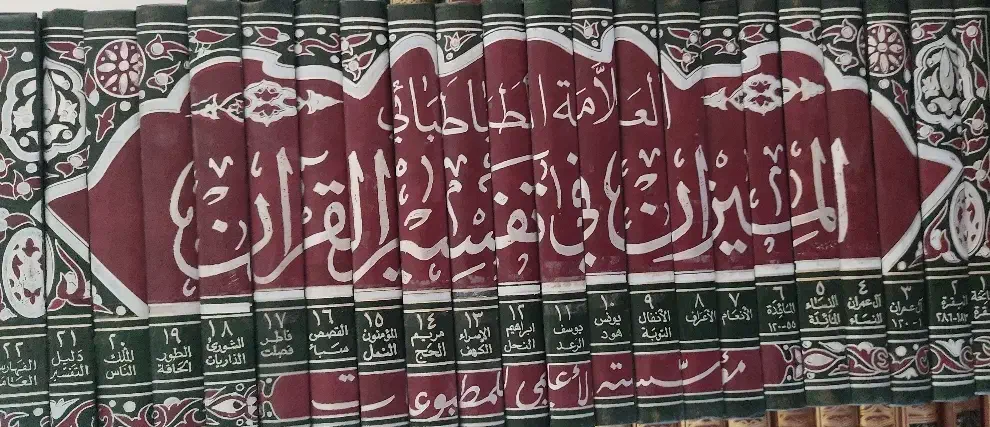 العلامة الطباطبائي
الميزان في تفسير القرآن
٢
البقرة
٣
آل عمران
٤
آل عمران
النساء
٥
النساء
المائدة
٦
المائدة
٧
الأنعام
٨
الأعراف
٩
الأنفال
التوبة
١٠
يونس
هود
١١
يوسف
الرعد
١٢
ابراهيم
النحل
١٣
الإسراء
الكهف
١٤
مريم
الحج
١٥
المؤمنون
النمل
١٦
القصص
سبأ
١٧
فاطر
فصلت
١٨
الشورى
الذاريات
١٩
الطور
الحاقة
٢٠
الملك
الناس
٢١
دليل
التفسير
٢٢
الفهارس
العامة
مؤسسة الأعلمي للمطبوعات